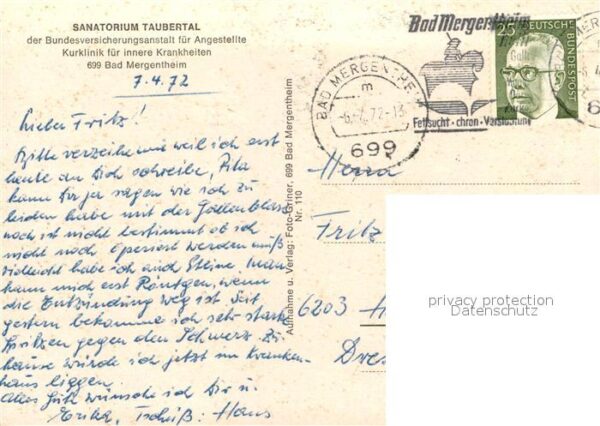 SANATORIUM TAUBERTAL
der Bundesversicherungsanstalt für Angestellte
Kurklinik für innere Krankheiten
699 Bad Mergentheim
7.4.72
Lieber Fritz!
Bitte verzeihe mir weil ich erst
heute an Dich schreibe, Rita
kann Dir ja sagen wie ich zu
leiden habe mit der Gallenblase
noch ist nicht bestimmt ob ich
nicht noch operiert werden muß
vielleicht habe ich auch Steine. Man
kann mich erst Röntgen, wenn
die Entzündung weg ist. Seit
gestern bekomme ich sehr starke
Spritzen gegen den Schmerz. Zu
hause würde ich jetzt im Kranken-
haus liggen.
Alles Gute wünsche ich Dir u.
Erika, Tschüß: Hans
Aufnahme u. Verlag: Foto-Griner, 699 Bad Mergentheim
Nr. 110
BAD MERGENTHE
m
-6.4.72-13
699
Bad Mergentheim
Fettsucht·chron·Verstopfung
25
DEUTSCHE BUNDESPOST
Herrn
Fritz
6203 H
Dres
privacy protection
Datenschutz